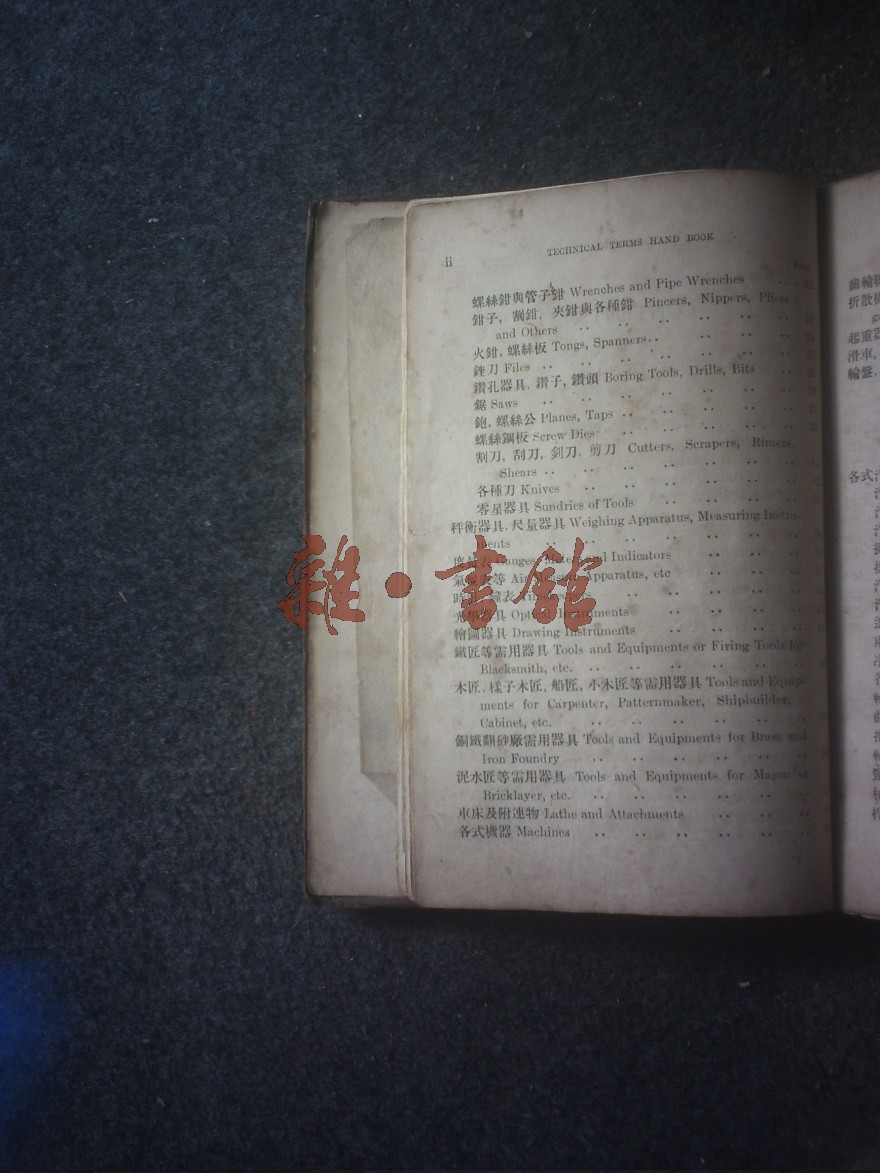 ii
TECHNICAL TERMS HAND BOOK
螺絲鉗與管子鉗 Wrenches and Pipe Wrenches
鉗子, 剪鉗, 夾鉗與各種鉗 Pincers, Nippers, Pliers
and Others
火鉗, 螺絲板 Tongs, Spanners
銼刀 Files
鑽孔器具, 鑽子, 鑽頭 Boring Tools, Drills, Bits
鋸 Saws
鉋, 螺絲公 Planes, Taps
螺絲鋼板 Screw Dies
割刀, 刮刀, 剪刀 Cutters, Scrapers, Rimers,
Shears
各種刀 Knives
零星器具 Sundries of Tools
秤衡器具, 尺量器具 Weighing Apparatus, Measuring Instru-
ments
Gauges, and Indicators
Apparatus, etc
器具 Optical Instruments
繪圖器具 Drawing Instruments
鐵匠等需用器具 Tools and Equipments or Firing Tools for
Blacksmith, etc.
木匠, 樣子木匠, 船匠, 小木匠等需用器具 Tools and Equip-
ments for Carpenter, Patternmaker, Shipbuilder,
Cabinet, etc.
銅鐵翻砂廠需用器具 Tools and Equipments for Brass and
Iron Foundry
泥水匠等需用器具 Tools and Equipments for Mason or
Bricklayer, etc.
車床及附連物 Lathe and Attachments
各式機器 Machines
雜·書館
起重器
滑車,
輪盤,
各式